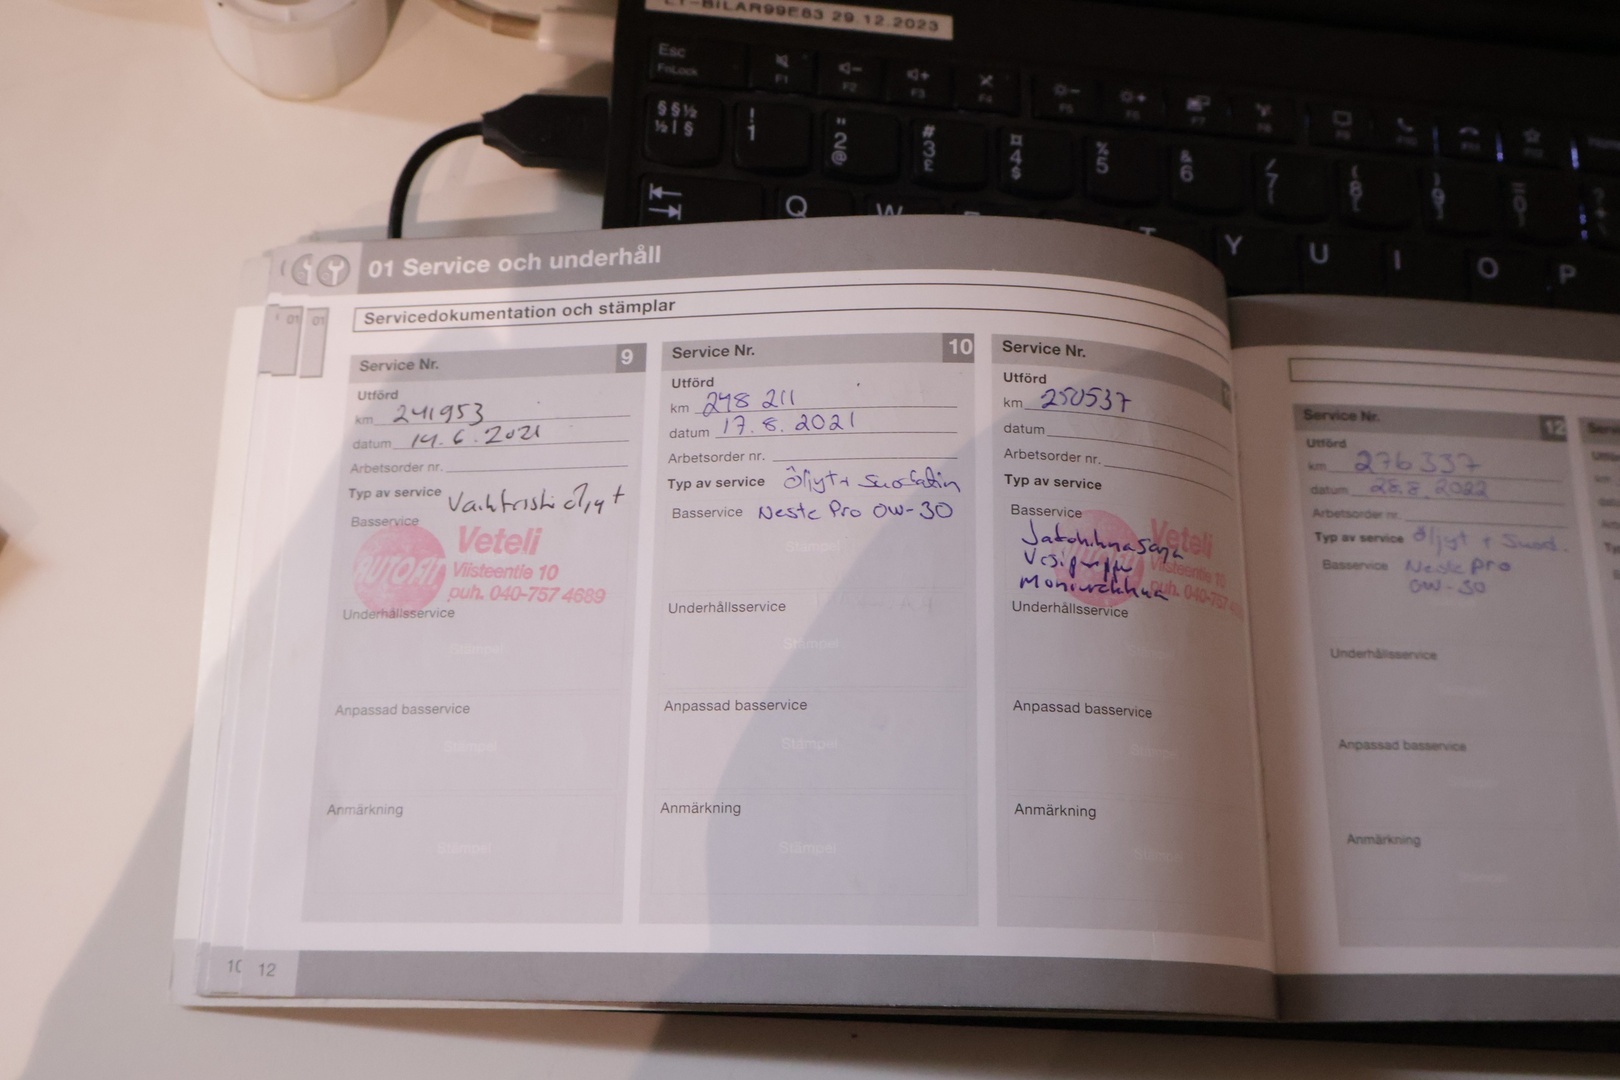 LT-BILAR99E83 29.12.2023
Esc
FnLock
F1
F2
F3
F4
F5
F6
F7
F8
§ § ½
½ | §
!
1
"
2
@
#
3
£
¤
4
$
%
5
&
6
/
7
{
(
8
[
)
9
]
=
0
}
Q
W
E
T
Y
U
I
O
P
01 Service och underhåll
01
01
Servicedokumentation och stämplar
Service Nr. 9
Utförd
km 241953
datum 14.6.2021
Arbetsorder nr.
Typ av service Vaihteisto öljyt
Basservice
AUTOFIT
Veteli
Viisteentie 10
puh. 040-757 4689
Underhållsservice
Stämpel
Anpassad basservice
Stämpel
Anmärkning
Stämpel
Service Nr. 10
Utförd
km 248 211
datum 17.8.2021
Arbetsorder nr.
Typ av service Öljyt + Suodatin
Basservice Neste Pro 0W-30
Stämpel
Underhållsservice
Stämpel
Anpassad basservice
Stämpel
Anmärkning
Stämpel
Service Nr.
Utförd
km 250537
datum
Arbetsorder nr.
Typ av service
Basservice
Jakohihnasarja
Vesipumppu
Moniurahihna
Veteli
Viisteentie 10
puh. 040-757 4
Underhållsservice
Stämpel
Anpassad basservice
Stämpel
Anmärkning
Stämpel
Service Nr. 12
Utförd
km 276337
datum 28.8.2022
Arbetsorder nr.
Typ av service Öljyt + Suod.
Basservice Neste Pro
0W-30
Underhållsservice
Anpassad basservice
Anmärkning
Stämpel
10
12